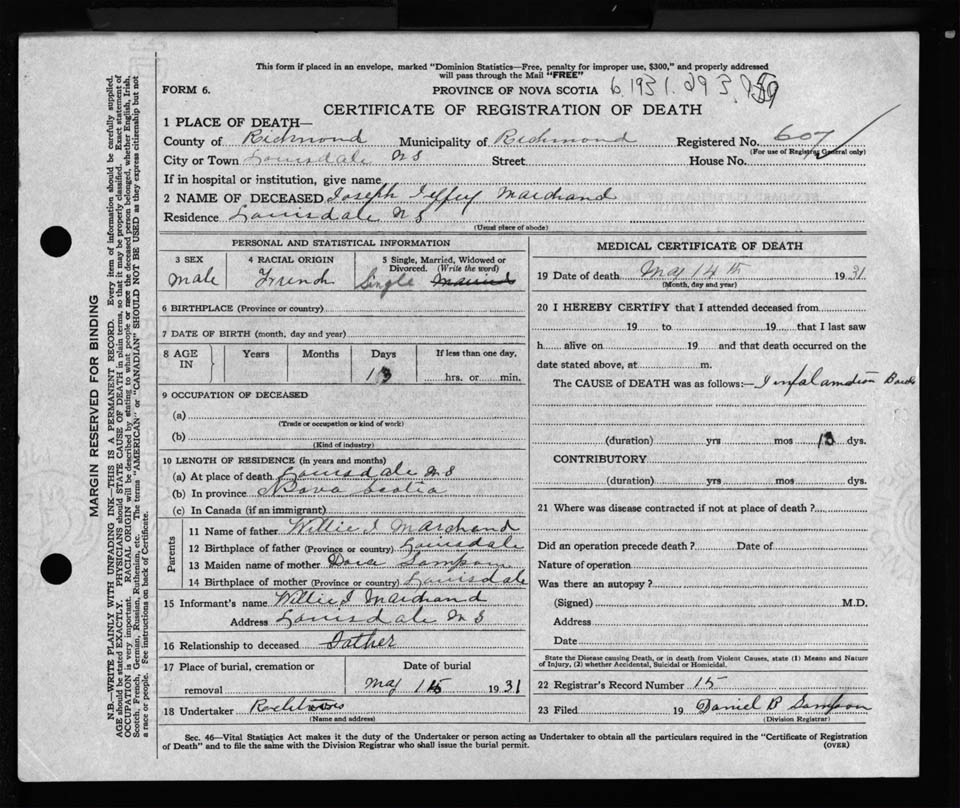 This form if placed in an envelope, marked "Dominion Statistics—Free, penalty for improper use, $300," and properly addressed
will pass through the Mail "FREE"
FORM 6. PROVINCE OF NOVA SCOTIA 6.1931.293.
CERTIFICATE OF REGISTRATION OF DEATH
1 PLACE OF DEATH—
County of Richmond Municipality of Richmond Registered No. 607
(For use of Registrar General only)
City or Town Louisdale NS Street House No.
If in hospital or institution, give name
2 NAME OF DECEASED Joseph Jeffrey Marchand
Residence Louisdale NS
(Usual place of abode)
PERSONAL AND STATISTICAL INFORMATION
3 SEX 4 RACIAL ORIGIN 5 Single, Married, Widowed or
Divorced. (Write the word)
Male French Single Married
6 BIRTHPLACE (Province or country)
7 DATE OF BIRTH (month, day and year)
8 AGE IN Years Months Days If less than one day,
13 hrs. or min.
9 OCCUPATION OF DECEASED
(a)
(Trade or occupation or kind of work)
(b)
(Kind of industry)
10 LENGTH OF RESIDENCE (in years and months)
(a) At place of death Louisdale NS
(b) In province Nova Scotia
(c) In Canada (if an immigrant)
Parents
11 Name of father Willie J Marchand
12 Birthplace of father (Province or country) Louisdale
13 Maiden name of mother Sampson
14 Birthplace of mother (Province or country) Louisdale
15 Informant's name Willie J Marchand
Address Louisdale NS
16 Relationship to deceased Father
17 Place of burial, cremation or Date of burial
removal May 15 1931
18 Undertaker
(Name and address)
MEDICAL CERTIFICATE OF DEATH
19 Date of death May 14th 1931
(Month, day and year)
20 I HEREBY CERTIFY that I attended deceased from
19 to 19 that I last saw
h alive on 19 and that death occurred on the
date stated above, at m.
The CAUSE OF DEATH was as follows:—
(duration) yrs mos 13 dys.
CONTRIBUTORY
(duration) yrs. mos. dys.
21 Where was disease contracted if not at place of death?
Did an operation precede death? Date of
Nature of operation
Was there an autopsy?
(Signed) M.D.
Address
Date
State the Disease causing Death, or in death from Violent Causes, state (1) Means and Nature
of Injury, (2) whether Accidental, Suicidal or Homicidal.
22 Registrar's Record Number 15
23 Filed 19 Daniel B Sampson
(Division Registrar)
Sec. 46—Vital Statistics Act makes it the duty of the Undertaker or person acting as Undertaker to obtain all the particulars required in the "Certificate of Registration
of Death" and to file the same with the Division Registrar who shall issue the burial permit. (OVER)
MARGIN RESERVED FOR BINDING
N.B.—WRITE PLAINLY WITH UNFADING INK—THIS IS A PERMANENT RECORD. Every item of information should be carefully supplied.
AGE should be stated EXACTLY. PHYSICIANS should STATE CAUSE OF DEATH in plain terms, so that it may be properly classified. Exact statement of
OCCUPATION is very important. RACIAL ORIGIN will be described by stating to what people or race the deceased person belonged, whether English, Irish,
Scotch, French, German, Russian, Ruthenian, etc. The terms "AMERICAN" or "CANADIAN" SHOULD NOT BE USED as they express citizenship but not
a race or people. See instructions on back of Certificate.